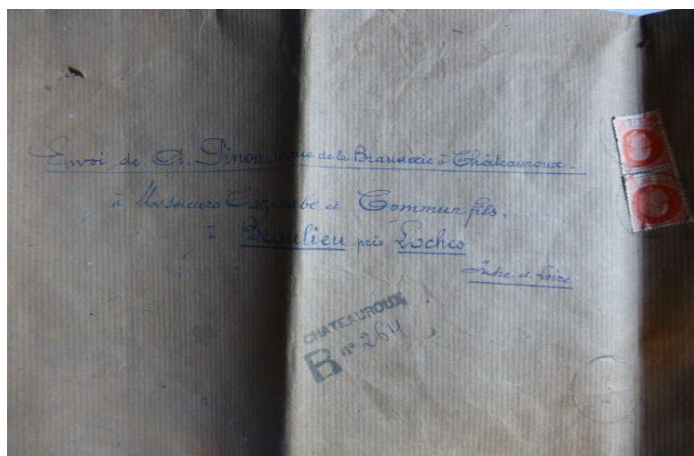 Envoi de A. Pinon rue de la Brauderie à Châteauroux.
à Messieurs et Commun fils.
à Beaulieu près Loches
Indre et Loire
CHATEAUROUX
B n° 264